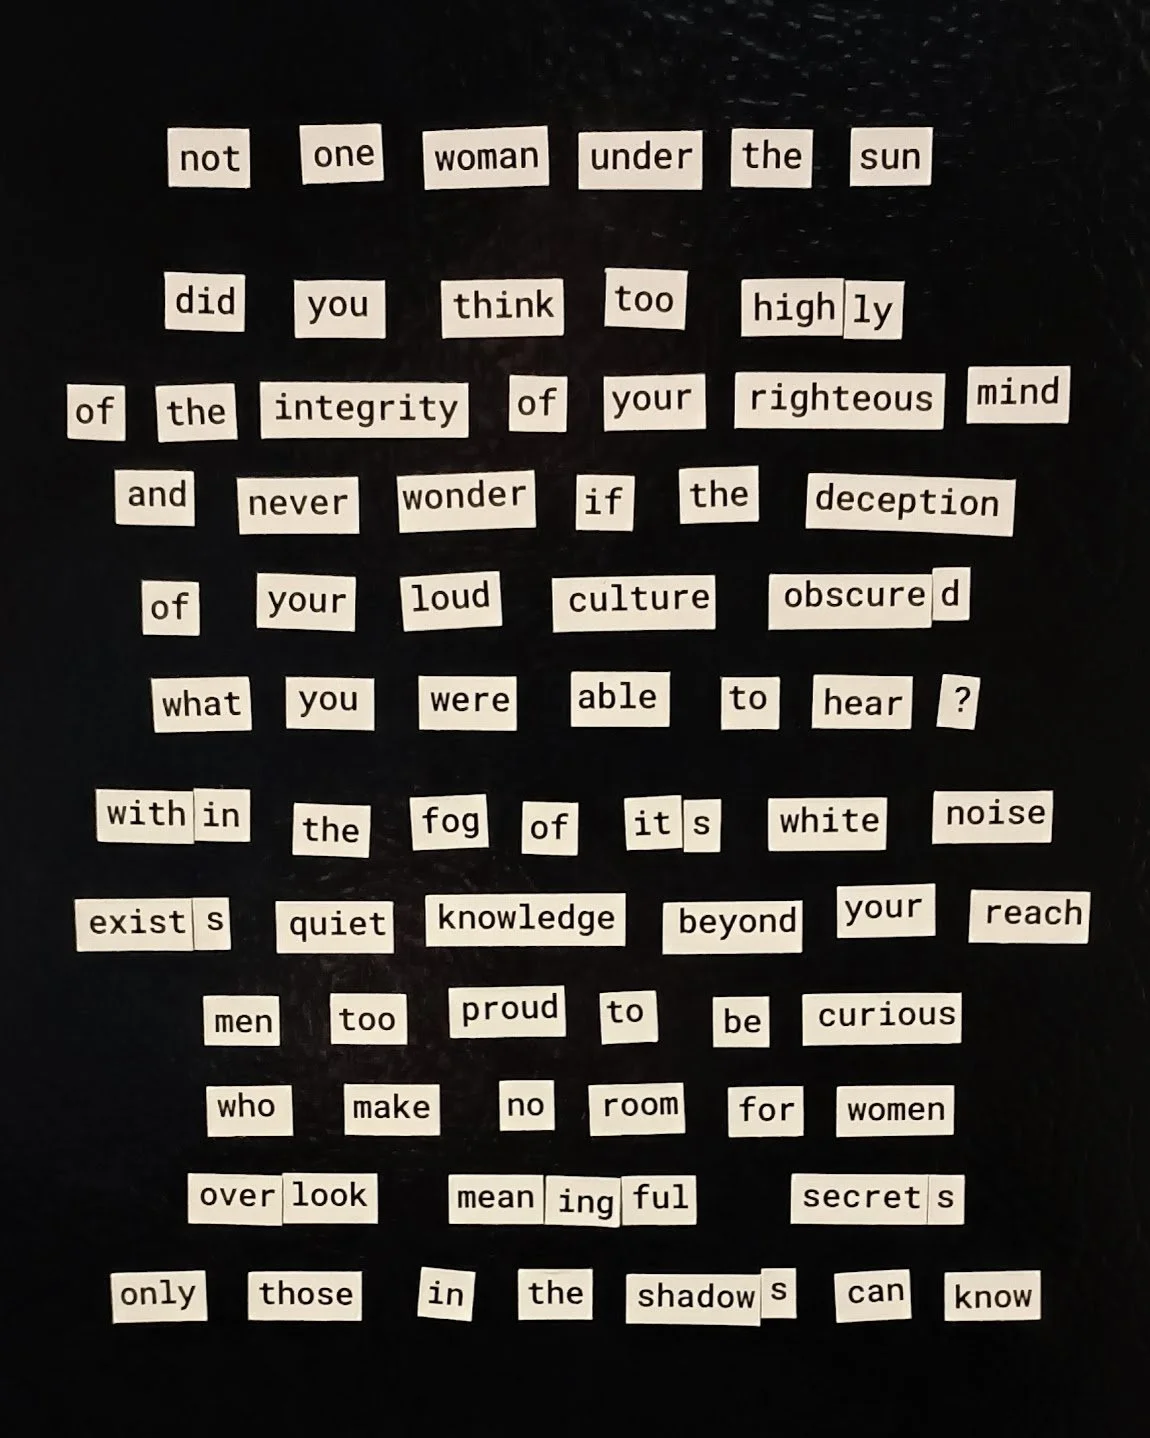 not one woman under the sun
did you think too highly
of the integrity of your righteous mind
and never wonder if the deception
of your loud culture obscured
what you were able to hear ?
within the fog of its white noise
exists quiet knowledge beyond your reach
men too proud to be curious
who make no room for women
overlook meaningful secrets
only those in the shadows can know